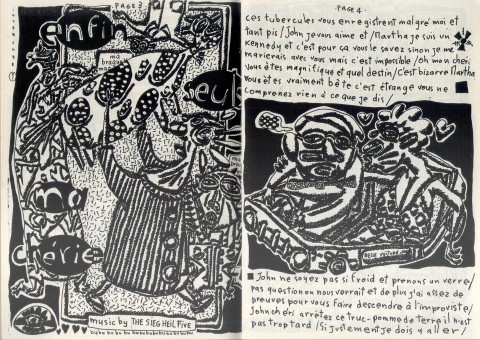 PAGE 3
enfin
ma
seul
music by THE SIEG HEIL FIVE
PAGE 4
ces tubercules vous enregistrent malgré moi et
tant pis / John je vous aime et / Martha je suis un
Kennedy et c'est pour ça vous le savez sinon je me
marierais avec vous mais c'est impossible / oh mon chéri
vous êtes magnifique et quel destin / C'est bizarre Martha
vous êtes vraiment bête c'est étrange vous ne
comprenez rien à ce que je dis /
John ne soyez pas si froid et prenons un verre /
pas question on nous verrait et de plus j'ai assez de
preuves pour vous faire descendre à l'improviste /
John chéri arrêtez ce truc-pomme de terre il n'est
pas trop tard / Si justement je dois y aller /